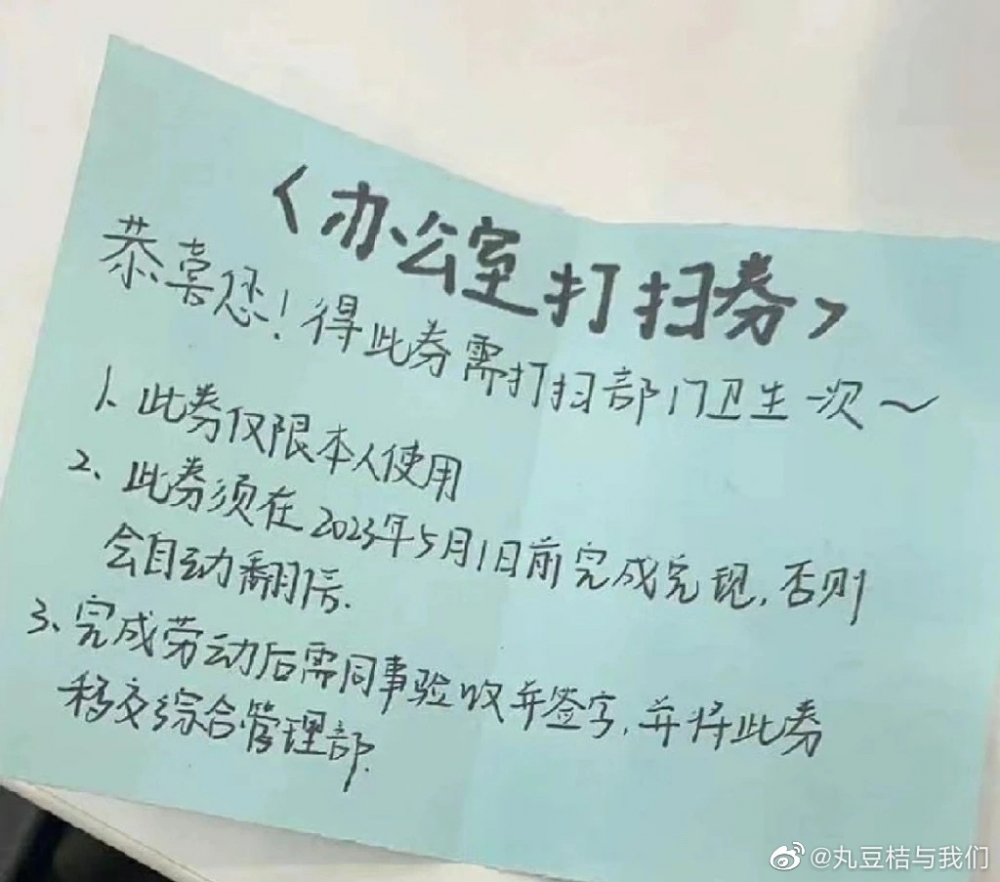 〈办公室打扫券〉
恭喜您！得此券需打扫部门卫生一次～
1、此券仅限本人使用
2、此券须在2023年5月1日前完成兑现，否则
会自动翻倍.
3、完成劳动后需同事验收并签字，并将此券
移交综合管理部.
@丸豆桔与我们